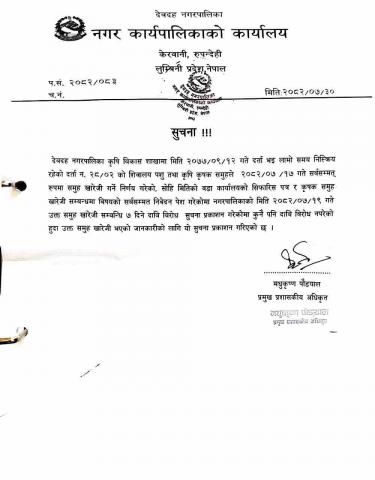 देवदह नगरपालिका
नगर कार्यपालिकाको कार्यालय
केरवानी, रुपन्देही
लुम्बिनी प्रदेश, नेपाल
प.सं. २०८२/०८३
च.नं.
मिति:२०८२/०७/३०
सुचना !!!
देवदह नगरपालिका कृषि विकास शाखामा मिति २०७७/०९/१२ गते दर्ता भइ लामो समय निस्क्रिय
रहेको दर्ता न. २८/०२ को शिवालय पशु तथा कृषि कृषक समुहले २०८२/०७ /१७ गते सर्वसम्मत्
रुपमा समुह खारेजी गर्ने निर्णय गरेको, सोहि मितिको वडा कार्यालयको सिफारिस पत्र र कृषक समुह
खारेजी सम्वन्धमा बिषयको सर्वसम्मत निवेदन पेश गरेकोमा नगरपालिकाको मिति २०८२/०७/१९ गते
उक्त समुह खारेजी सम्वन्धि ७ दिने दावि विरोध सुचना प्रकाशन गरेकोमा कुनै पनि दावि विरोध नपरेको
हुदा उक्त समुह खारेजी भएको जानकारीको लागि यो सुचना प्रकाशन गरिएको छ ।
मधुकृष्ण पौडयाल
प्रमुख प्रशासकीय अधिकृत
मधुकृष्ण पौडयाल
प्रमुख प्रशासकीय अधिकृत